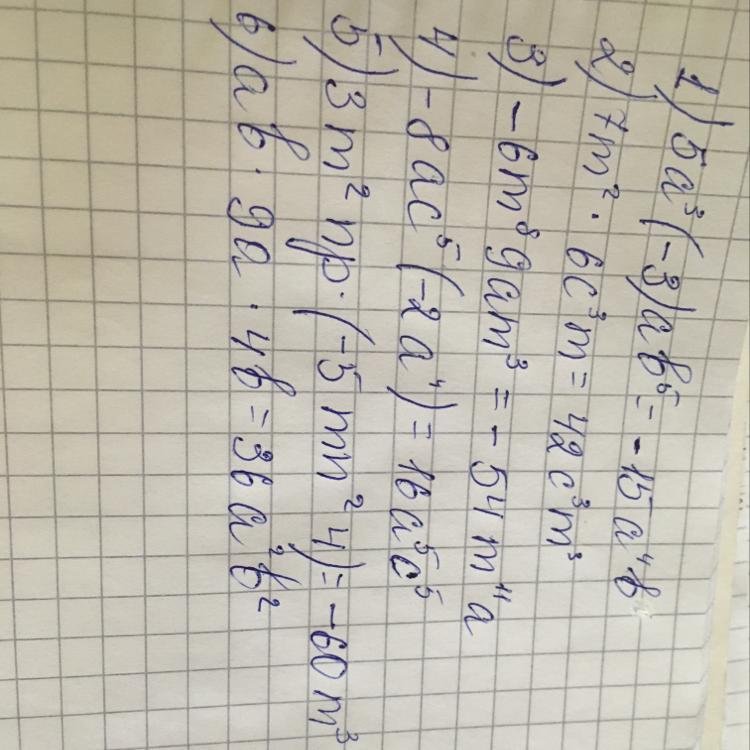 1) 5a³(-3)ab⁵ = -15a⁴b
2) 7m² · 6c³m = 42c³m³
3) -6m⁸9am³ = -54m¹¹a
4) -8ac⁵(-2a⁴) = 16a⁵c⁵
5) 3m²np·(-5mn²4) = -60m³
6) ab · 9a · 4b = 36a²b²